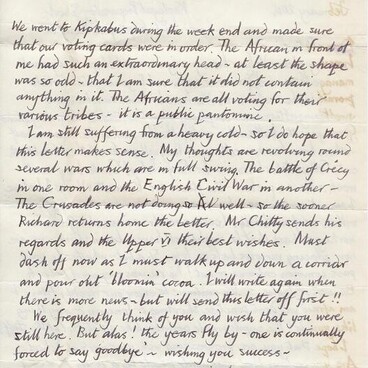 We went to Kipkabus during the week end and made sure
that our voting cards were in order. The African in front of
me had such an extraordinary head - at least the shape
was so odd - that I am sure that it did not contain
anything in it. The Africans are all voting for their
various tribes - it is a public pantomine.
I am still suffering from a heavy cold - so I do hope that
this letter makes sense. My thoughts are revolving round
several wars which are in full swing. The battle of Crécy
in one room and the English Civil War in another -
The Crusades are not doing so well - so the sooner
Richard returns home the better. Mr Chitty sends his
regards and the Upper VI their best wishes. Must
dash off now as I must walk up and down a corridor
and pour out 'bloomin' cocoa. I will write again when
there is more news - but will send this letter off first!!
We frequently think of you and wish that you were
still here. But alas! the years fly by - one is continually
forced to say 'goodbye' - wishing you success -